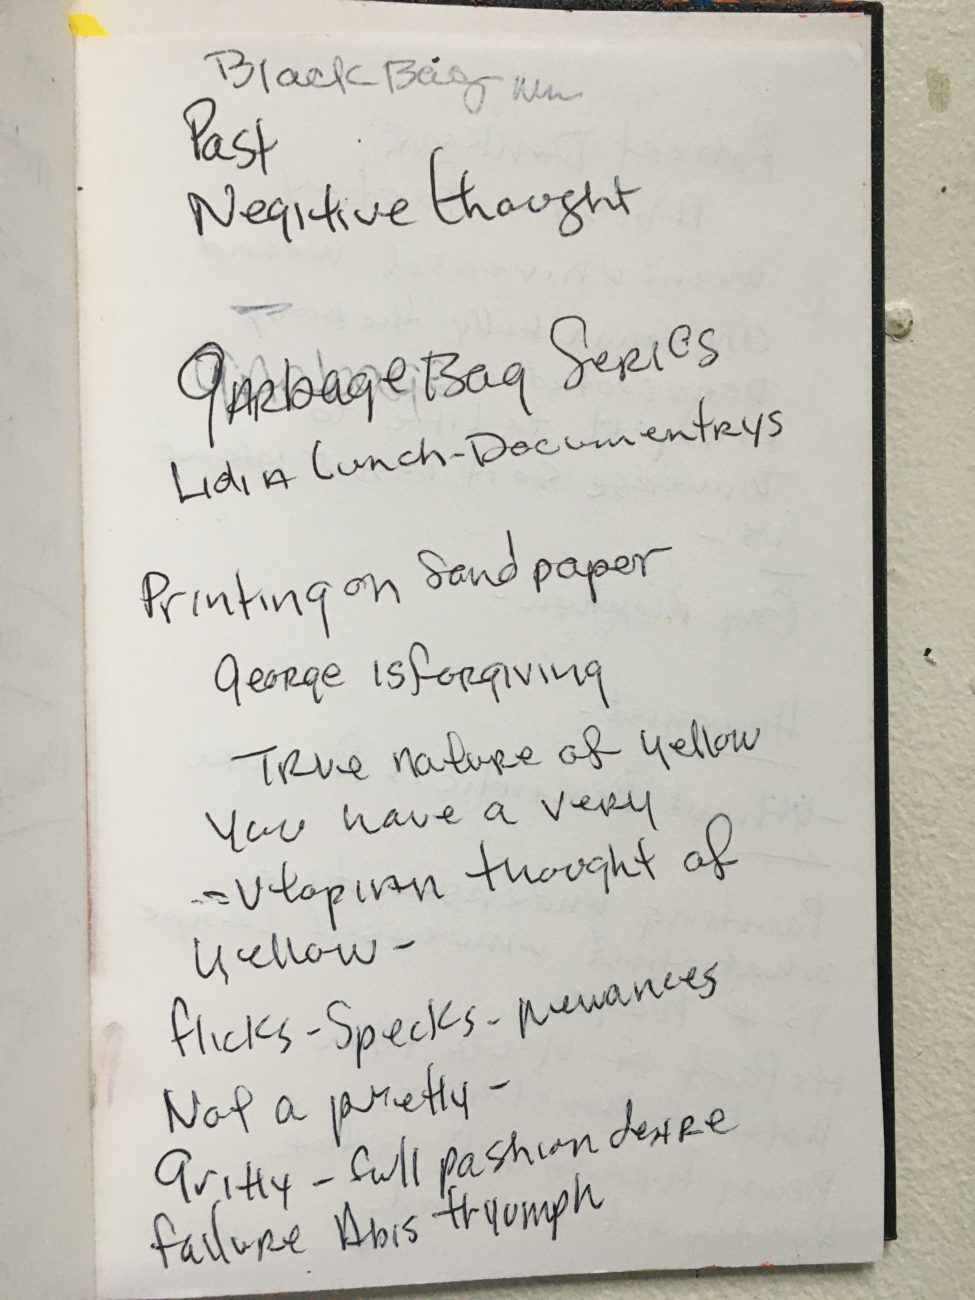 Black Bag
Past
Negitive thought
Garbage Bag Series
Lidia Lunch-Documentrys
Printing on Sand paper
George is forgiving
True nature of yellow
You have a very
-utopian thought of
yellow-
flicks-Specks-newances
Not a pretty-
Gritty-full pashion desire
failure Abis tryumph